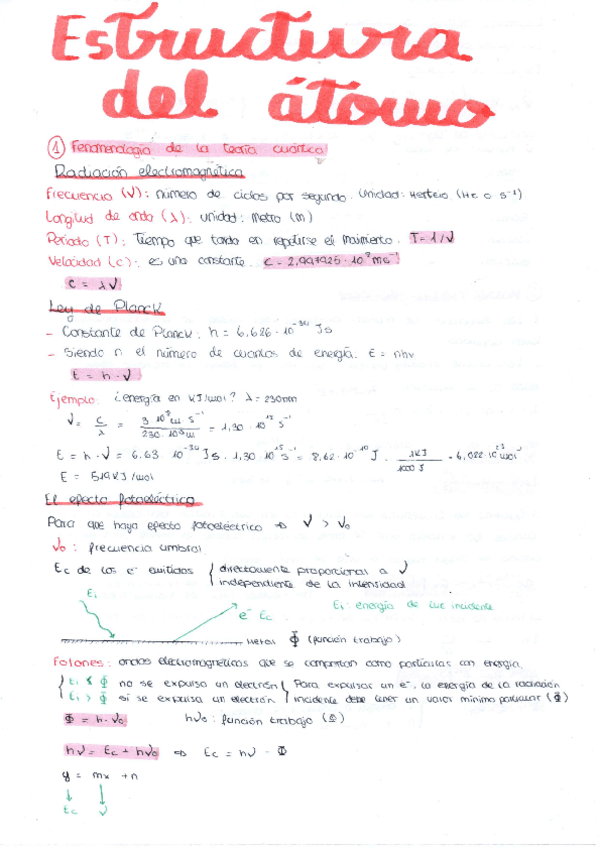 Estructura
del átomo
① Fenomenología de la teoría cuántica
Radiación electromagnética
Frecuencia (ν): número de ciclos por segundo. Unidad: Hertzio (Hz o s⁻¹)
Longitud de onda (λ): unidad: metro (m)
Periodo (T): Tiempo que tarda en repetirse el movimiento. T = 1/ν
Velocidad (c): es una constante. c = 2,997925 · 10⁸ ms⁻¹
c = λν
Ley de Planck
- Constante de Planck: h = 6,626 · 10⁻³⁴ Js
- Siendo n el número de cuantos de energía: E = nhν
E = h · ν
Ejemplo: ¿energía en KJ/mol? λ = 230nm
ν = c/λ = 3 · 10⁸ m · s⁻¹ / 230 · 10⁻⁹ m = 1,30 · 10¹⁵ s⁻¹
E = h · ν = 6.63 · 10⁻³⁴ Js · 1,30 · 10¹⁵ s⁻¹ = 8,62 · 10⁻¹⁹ J · 1KJ / 1000 J · 6,022 · 10²³ mol⁻¹
E = 519 KJ/mol
El efecto fotoeléctrico
Para que haya efecto fotoeléctrico ⇒ ν > ν₀
ν₀: frecuencia umbral
Ec de los e⁻ emitidos { directamente proporcional a ν
independiente de la intensidad
Ei
e⁻ Ec
Ei: energía de luz incidente
Metal Φ (función trabajo)
Fotones: ondas electromagnéticas que se comportan como partículas con energía.
{ Ei < Φ no se expulsa un electrón { Para expulsar un e⁻, la energía de la radiación
Ei > Φ si se expulsa un electrón incidente debe tener un valor mínimo particular (Φ)
Φ = h · ν₀ hν₀: función trabajo (Φ)
hν = Ec + hν₀ ⇒ Ec = hν - Φ
y = mx + n
↓ ↓
Ec ν